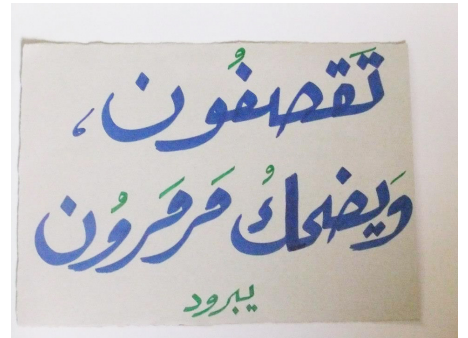 تَقصفُون،
وَيضحكُ مَرمَرُون
يبرود